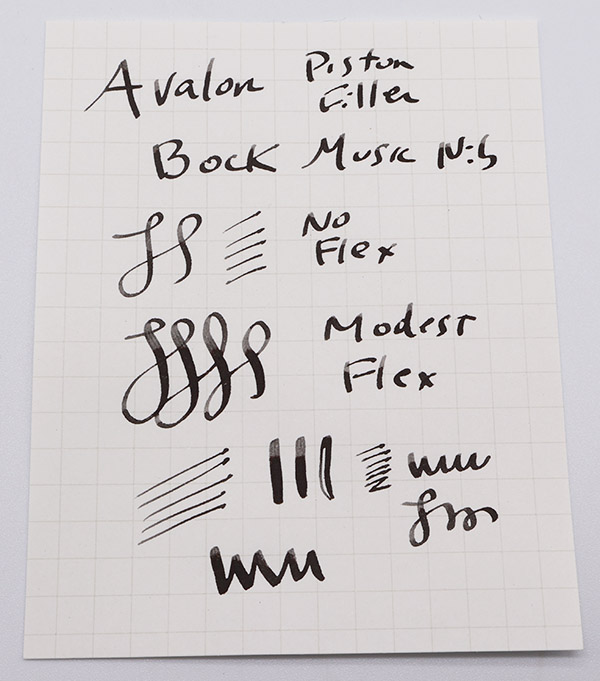 Avalon Piston Filler
Bock Music Nib
No Flex
Modest Flex